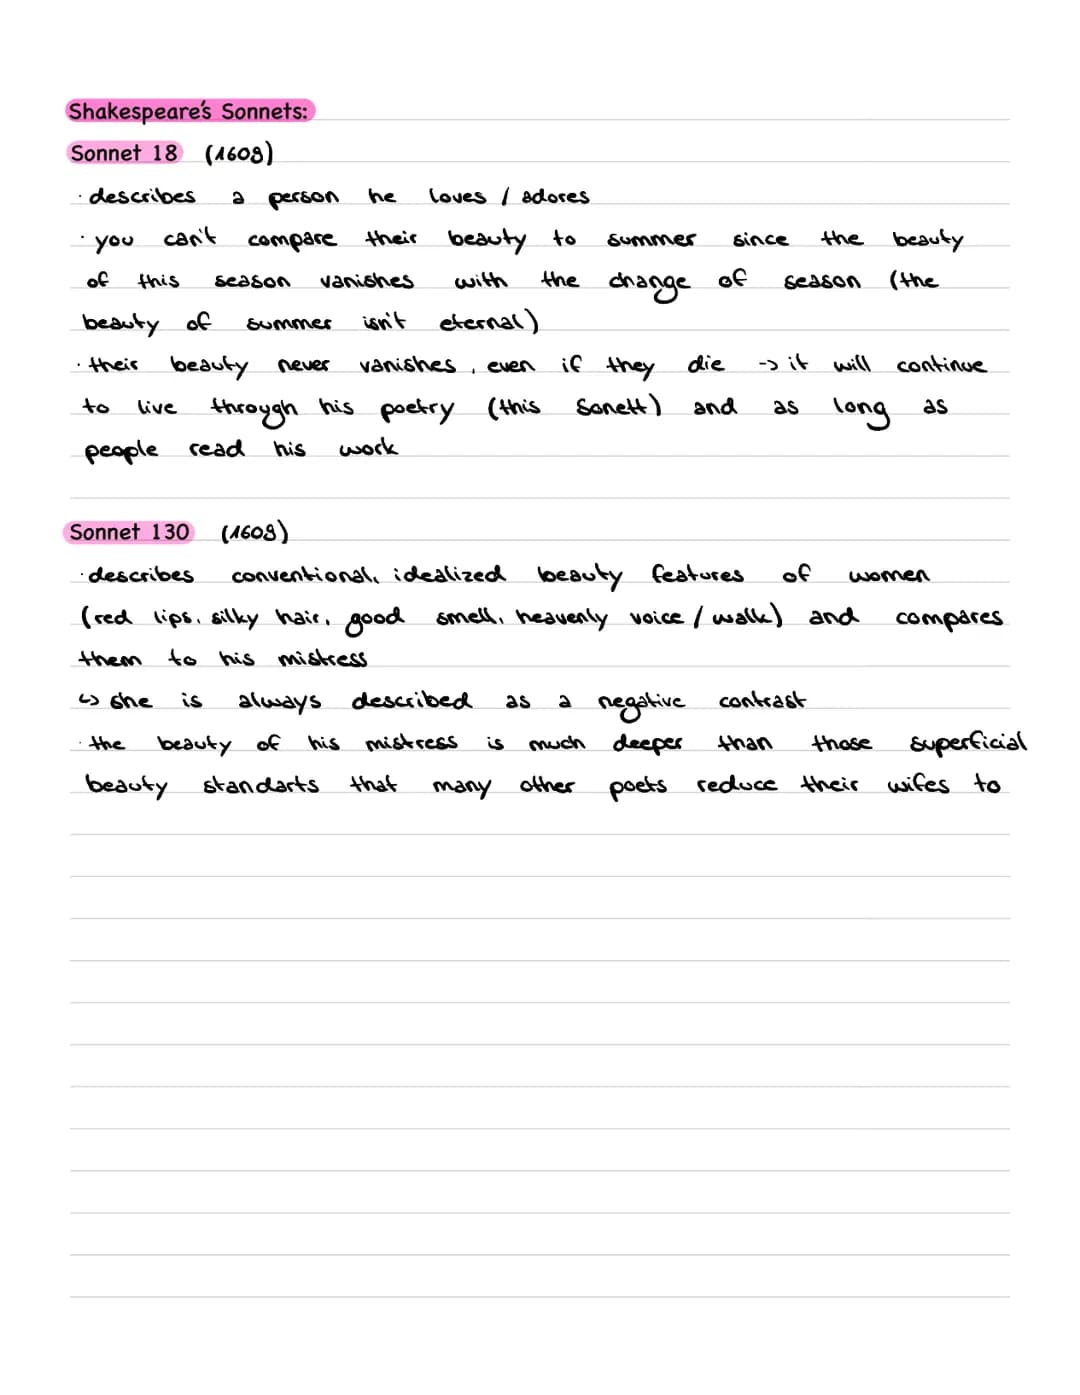 Shakespeare's Sonnets:
Sonnet 18 (1609)
· describes a person he loves / adores
· you can't compare their beauty to summer since the beauty
of this season vanishes with the change of season (the
beauty of summer isn't eternal)
· their beauty never vanishes, even if they die -> it will continue
to live through his poetry (this Sonett) and as long as
people read his work
Sonnet 130 (1609)
· describes conventional, idealized beauty features of women
(red lips, silky hair, good smell, heavenly voice / walk) and compares
them to his mistress
↳ she is always described as a negative contrast
· the beauty of his mistress is much deeper than those superficial
beauty standarts that many other poets reduce their wifes to